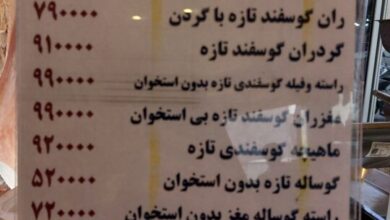 ران گوسفند تازه با گردن ۷۹۰۰۰۰
گردران گوسفند تازه ۹۱۰۰۰۰
راسته وفیله گوسفندی تازه بدون استخوان ۹۹۰۰۰۰
مغزران گوسفند تازه بی استخوان ۹۹۰۰۰۰
ماهیچه گوسفندی تازه ۹۲۰۰۰۰
گوساله تازه بدون استخوان ۵۲۰۰۰۰
راسته گوساله مغز بدون استخوان ۷۲۰۰۰۰